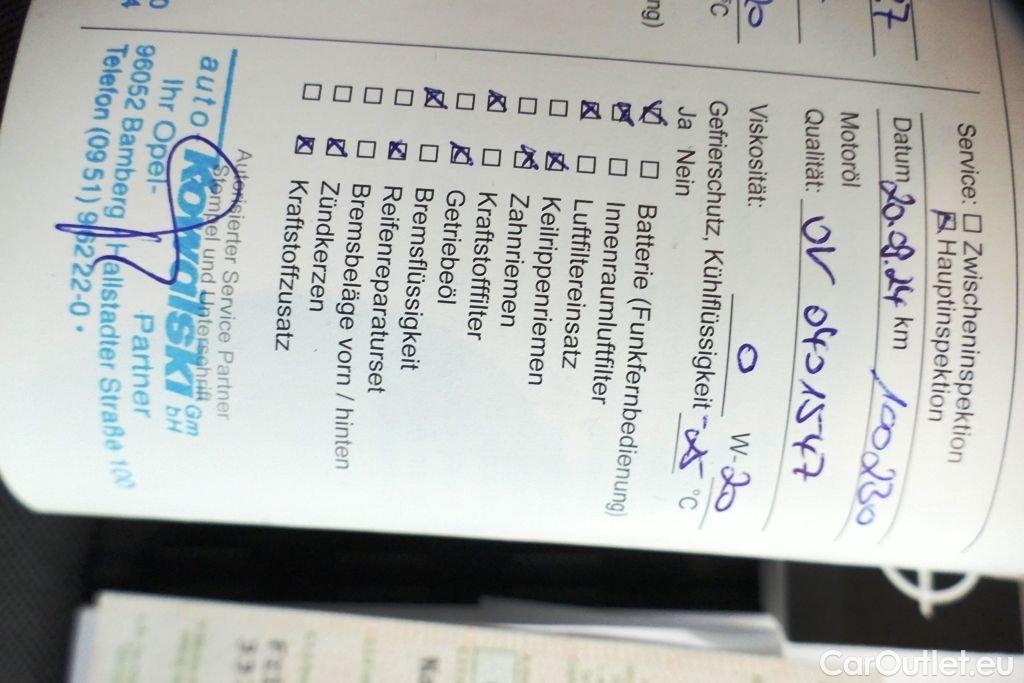 Service: ☐ Zwischeninspektion
☒ Hauptinspektion
Datum 20.08.24 km 100230
Motoröl
Qualität: OV 0401547
Viskosität: 0 W-20
Gefrierschutz, Kühlflüssigkeit -25 °C
Ja Nein
☒ ☐ Batterie (Funkfernbedienung)
☒ ☐ Innenraumluftfilter
☒ ☐ Luftfiltereinsatz
☐ ☒ Keilrippenriemen
☐ ☒ Zahnriemen
☒ ☐ Kraftstofffilter
☐ ☒ Getriebeöl
☒ ☐ Bremsflüssigkeit
☐ ☒ Reifenreparaturset
☐ ☐ Bremsbeläge vorn / hinten
☐ ☒ Zündkerzen
☐ ☒ Kraftstoffzusatz
Autorisierter Service Partner
Stempel und Unterschrift
auto Kowalski GmbH
Ihr Opel-Partner
96052 Bamberg Hallstadter Straße 100
Telefon (0951) 96222-0
CarOutlet.eu